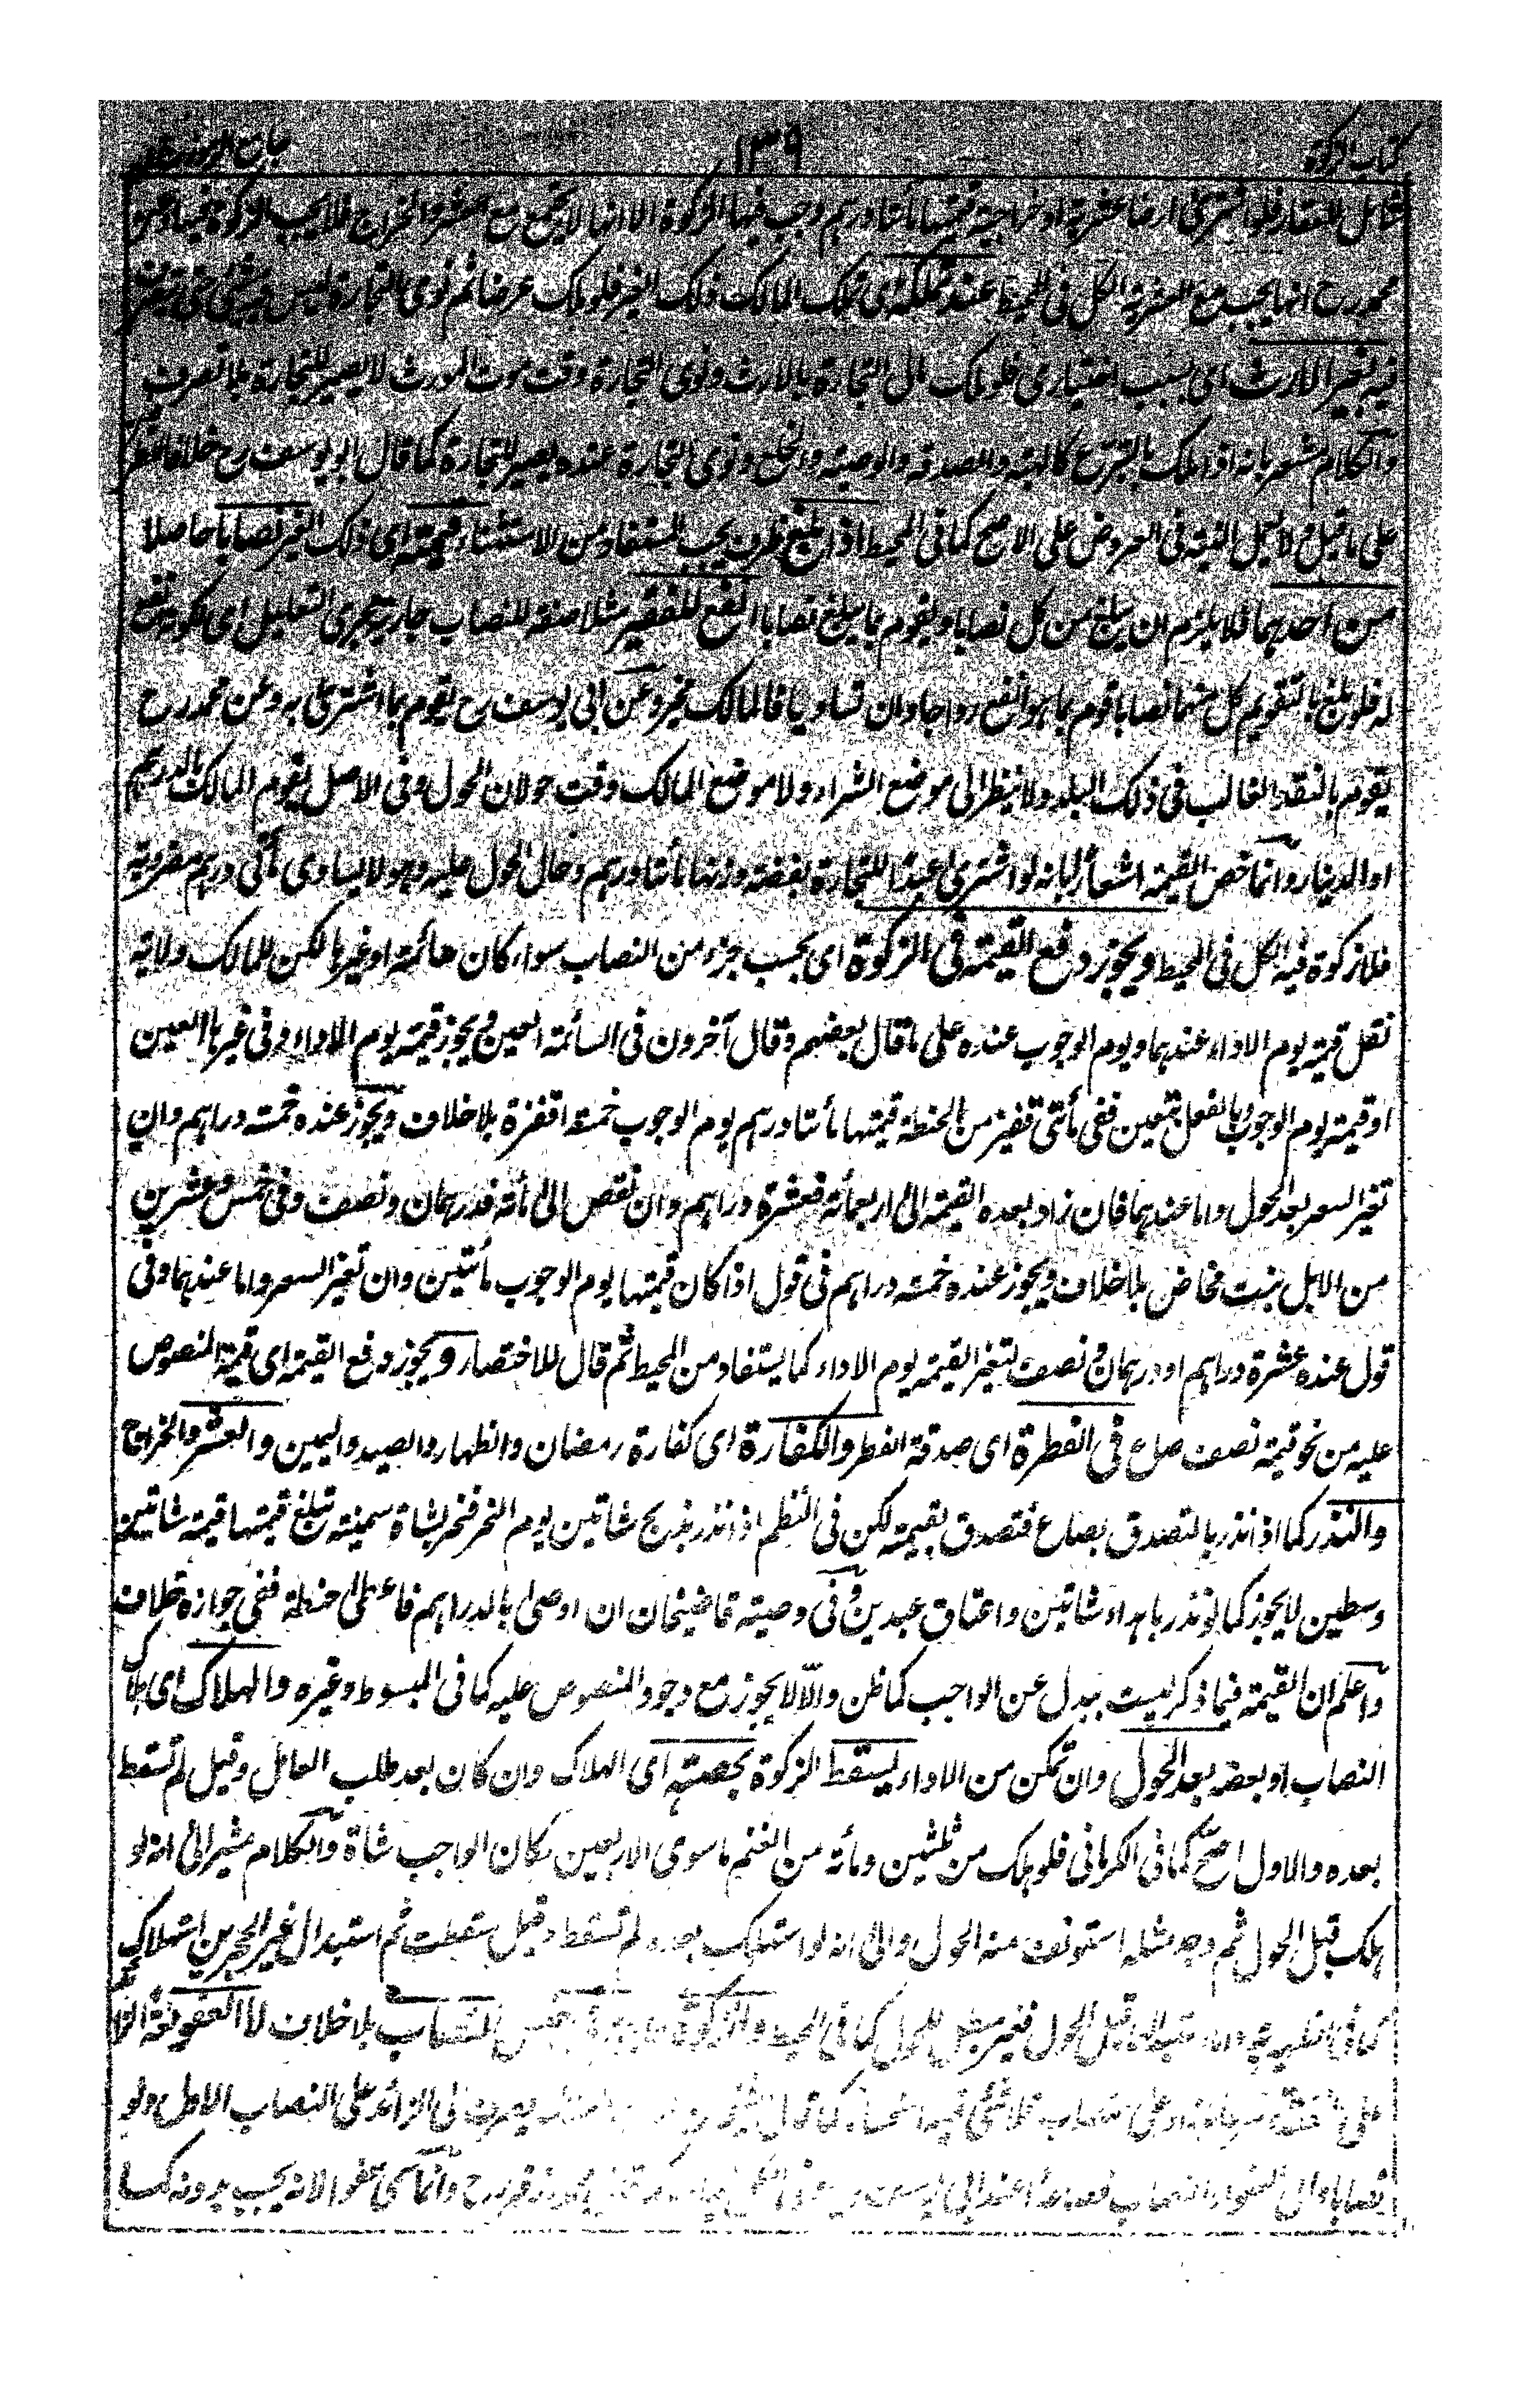 كتاب الزكوة ١٣٩ جامع الرموز
شامل للعقار فلو اشترى ارضا عشرية او خراجية قيمتها مأتا درهم وجب فيها الزكوة الا انها لا يجتمع مع العشر والخراج فلا يجب الزكوة فيها وعن
محمد رح انها يجب مع العشرية الكل فى المحيط عند تملكه اى تملك المالك ذلك الغير فلو ملك عرضا ثم نوى التجارة ليس فيه شئ حتى يتصرف
فيه بغير الارث اى بسبب اختيارى فلو ملك مال التجارة بالارث ونوى التجارة وقت موت المورث لا يصير للتجارة بلا تصرف
والكلام مشعر بانه اذا ملك بالتبرع كالهبة والصدقة والوصية والخلع ونوى التجارة عنده يصير للتجارة كما قال ابو يوسف رح خلافا
على ما قيل لا قبل النية فى العروض على الاصح كما فى المحيط اذا بلغ ظرف يجب المستفاد من الاستثناء قيمته اى ذلك الغير نصابا حاصلا
من احدهما فلا يلزم ان يبلغ من كل نصابا ويقوم بما يبلغ نصابا انفع للفقير مثلا صفة للنصاب جارية مجرى التعليل اى لكونه انفع
له فلو بلغ بالتقويم كل منهما نصابا قوم بما هو انفع رواجا وان تساويا فالمالك مخير وعن ابى يوسف رح يقوم بما اشترى به وعن محمد رح
يقوم بالنقد الغالب فى ذلك البلد ولا ينظر الى موضع الشراء ولا موضع المالك وقت حولان الحول وفى الاصل يقوم المالك بالدرهم
او الدينار وانما خص القيمة اشعارا بانه لو اشترى عبدا للتجارة بفضة وزنها مأتا درهم وحال الحول عليه وهو لا يساوى مأتى درهم مضروبة
فلا زكوة فيه الكل فى المحيط ويجوز دفع القيمة فى الزكوة اى بحسب جزء من النصاب سواء كان سائمة او غيرها لكن للمالك ولاية
نقل قيمة يوم الاداء عندهما ويوم الوجوب عنده على ما قال بعضهم وقال آخرون فى السائمة العين ويجوز قيمة يوم الاداء وفى غيرها العين
او قيمة يوم الوجوب وبالفعل يتعين ففى مأتى قفيز من الحنطة قيمتها مأتا درهم يوم الوجوب خمسة اقفزة بلا خلاف ويجوز عنده خمسة دراهم وان
تغير السعر بعد الحول واما عندهما فان زاد بعده القيمة الى اربعمأة فعشرة دراهم وان نقص الى مأة فدرهمان ونصف وفى خمس وعشرين
من الابل بنت مخاض بلا خلاف ويجوز عنده خمسة دراهم فى قول اذا كان قيمتها يوم الوجوب مأتين وان تغير السعر واما عندهما وفى
قول عنده عشرة دراهم او درهمان ونصف لتغير القيمة يوم الاداء كما يستفاد من المحيط ثم قال للاختصار ويجوز دفع القيمة اى قيمة المنصوص
عليه من نحو قيمة نصف صاع فى الفطرة اى صدقة الفطر والكفارة اى كفارة رمضان والظهار والصيد واليمين والعشر والخراج
والنذر كما اذا نذر بالتصدق بصاع فتصدق بقيمته لكن فى النظم اذا نذر بذبح شاتين يوم النحر فنحر بشاة سمينة تبلغ قيمتها قيمة شاتين
وسطين لا يجوز كما لو نذر باهداء شاتين واعتاق عبدين وفى وصية قاضيخان ان اوصى بالدراهم فاعطى حنطة ففى جوازه خلاف
واعلم ان القيمة فيما ذكر ليست ببدل عن الواجب كما ظن والا لا يجوز مع وجود المنصوص عليه كما فى المبسوط وغيره والهلاك اى هلاك
النصاب او بعضه بعد الحول وان تمكن من الاداء يسقط الزكوة بحصته اى الهلاك وان كان بعد طلب العامل وقيل لم تسقط
بعده والاول اصح كما فى الكرمانى فلو هلك من ثلثين ومأة من الغنم ما سوى الاربعين لكان الواجب شاة والكلام مشير الى انه لو
هلك قبل الحول ثم وجد مثله استونف منه الحول والى انه لو استهلك بعده لم تسقط وقيل سقطت ثم استبدال غير الحجرين استهلاك
كما فى قبل الحول فغير مبطل للحول كما فى المحيط والزكوة النصاب بلا خلاف لا العفو
على النصاب كما قال يصرف الى الزائد على النصاب الاول ولو
نصابا النصاب عند ابى يوسف وانما سمى عفوا لانه يجب بدونه كما